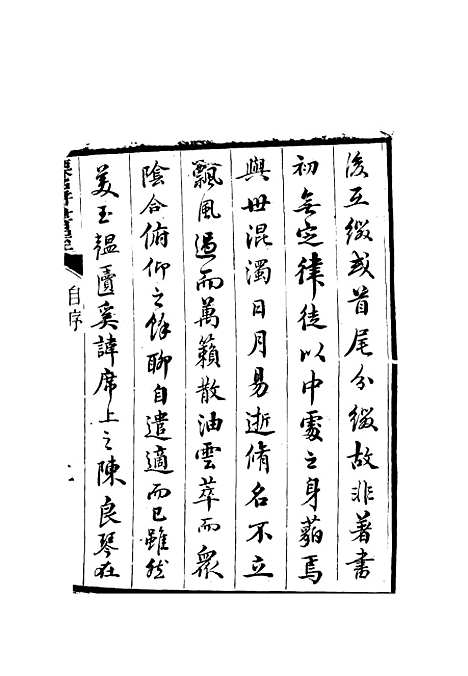 後互綴或首尾分綴故非著書
初無定律徒以中處之身藐焉
與世混濁日月易逝脩名不立
飄風過而萬籟散油雲萃而眾
陰合俯仰之餘聊自遣適而已雖然
美玉韞匵奚諱席上之陳良琴在
自序